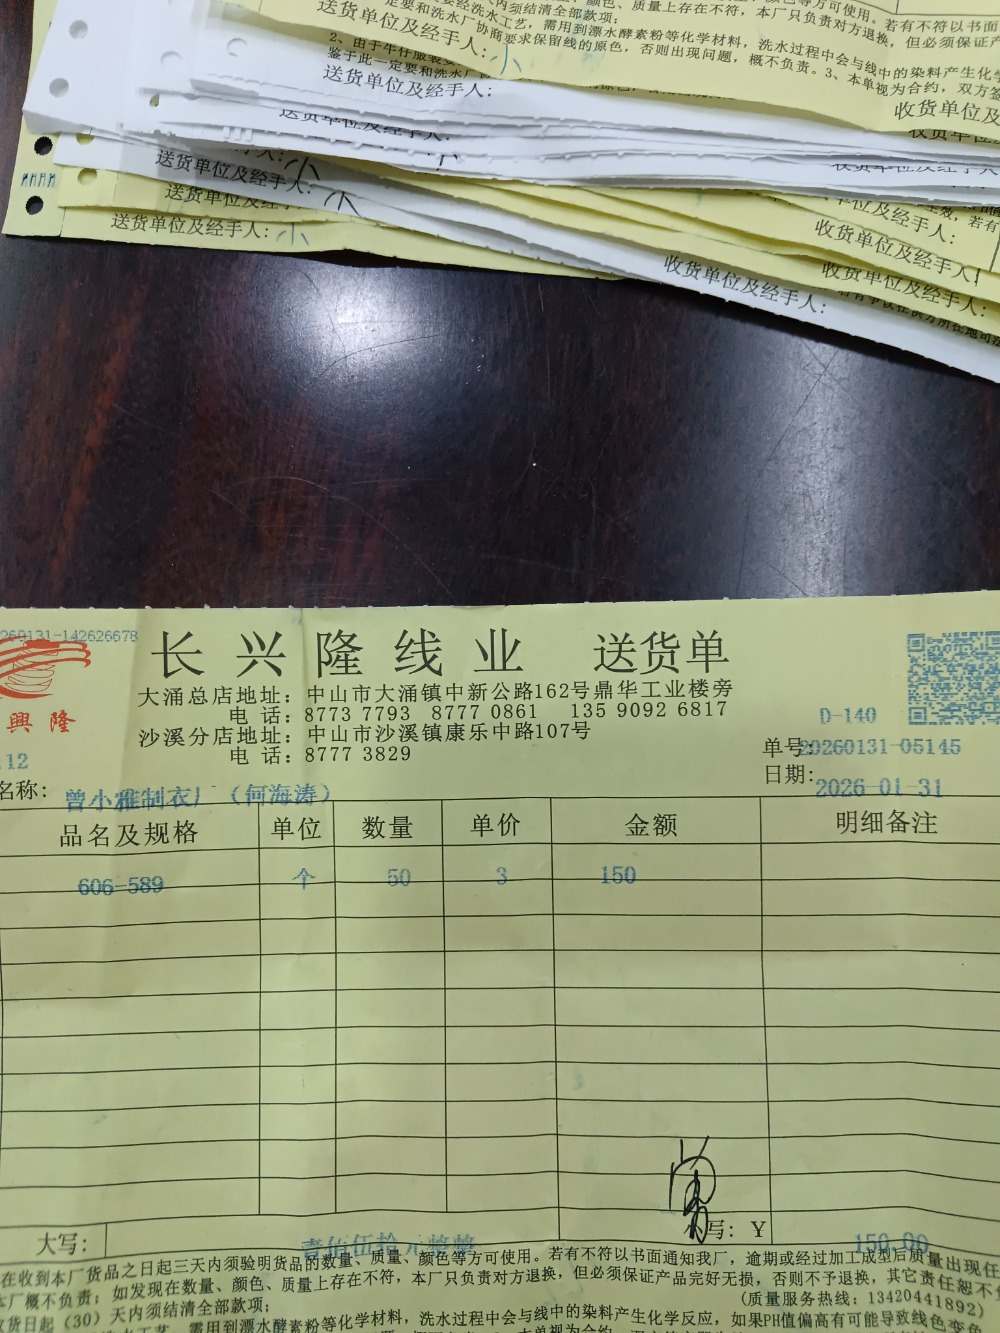 颜色、质量上存在不符，本厂只负责对方退换，但必须保证产
要经洗水工艺，需用到漂水酵素粉等化学材料，洗水过程中会与线中的染料产生化学
一定要和洗水厂协商要求保留线的原色，否则出现问题，概不负责。3、本单视为合约，双方签
送货单位及经手人：小
收货单位及
2、由于牛仔服装要
鉴于此一定要和洗水厂
送货单位及经手人：
收货单位
送货单位及经手人：
收货单位及经手人
送货单位及经手人：小
送货单位及经
收货单位及经手人：
送货单位及经手人：小
收货单位及经手人
收货单位及经手人：
收货单位及经手人：
260131-142626678
長興隆线业 送货单
興隆
大涌总店地址：中山市大涌镇中新公路162号鼎华工业楼旁
电 话：8773 7793 8777 0861 135 9092 6817
沙溪分店地址：中山市沙溪镇康乐中路107号
电 话：8777 3829
D-140
单号：20260131-05145
:12
日期：2026-01-31
名称：曾小雅制衣厂（何海涛）
品名及规格 单位 数量 单价 金额 明细备注
606-589 个 50 3 150
大写：壹佰伍拾元整整 小写：Y 150.00
在收到本厂货品之日起三天内须验明货品的数量、质量、颜色等方可使用。若有不符以书面通知我厂，逾期或经过加工成型后质量出现任
本厂概不负责；如发现在数量、颜色、质量上存在不符，本厂只负责对方退换，但必须保证产品完好无损，否则不予退换，其它责任恕不
收货日起（30）天内须结清全部款项；
(质量服务热线：13420441892)
需用到漂水酵素粉等化学材料，洗水过程中会与线中的染料产生化学反应，如果PH值偏高有可能导致线色变色